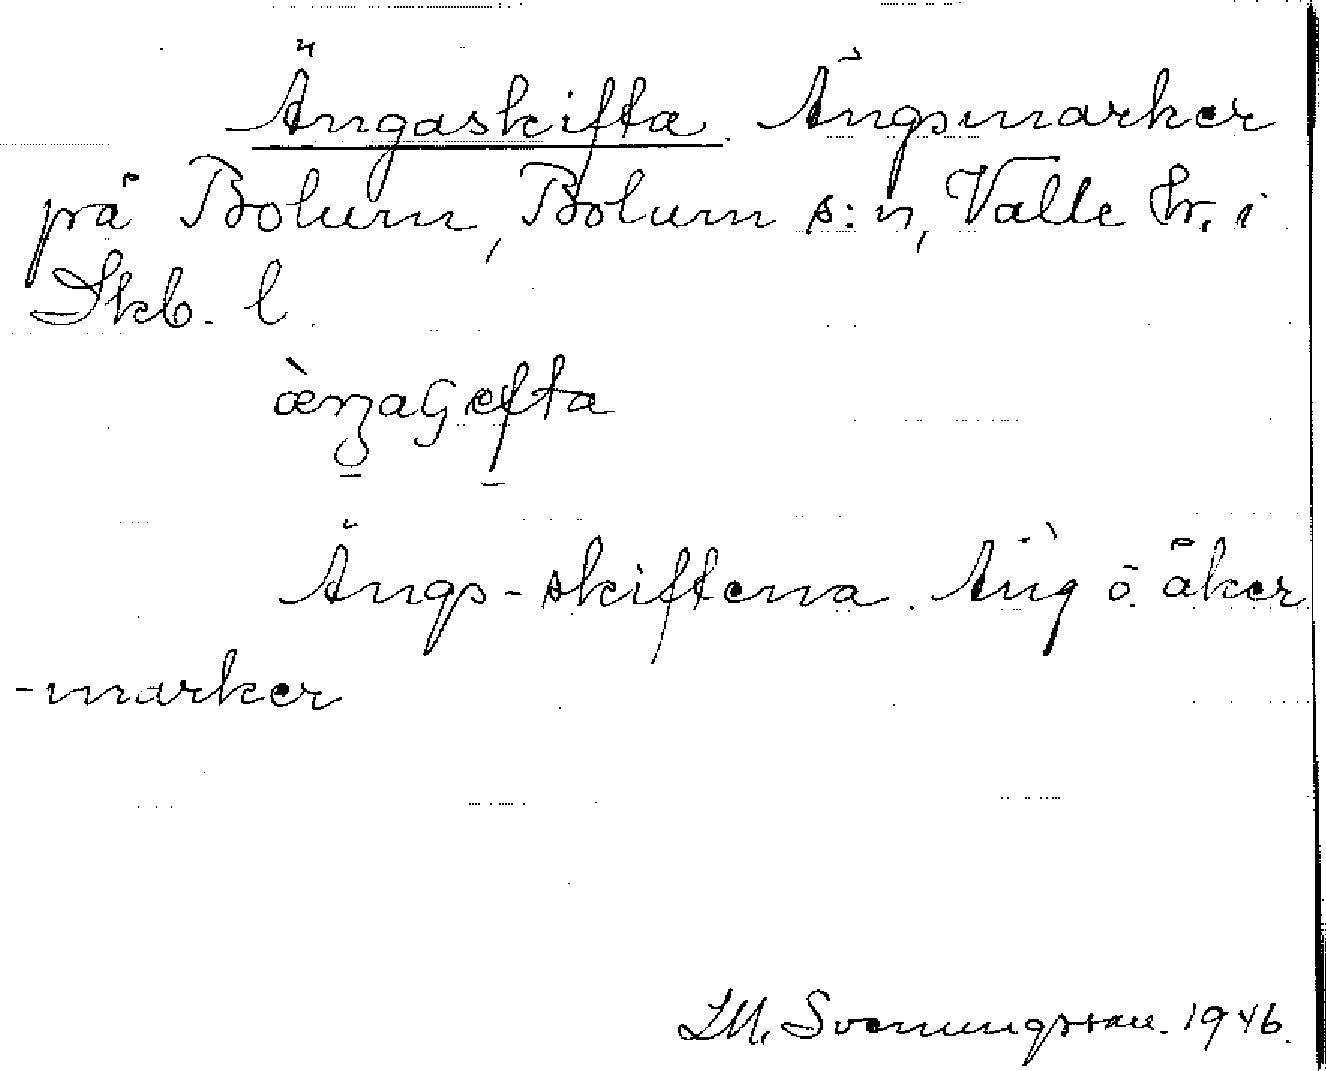 Ängaskifta. Ängsmarker
på Bolum, Bolum s:n, Valle hr. i
Skb. l.
Ängs-skiftena. Äng o. åker
-marker
Svenungsson. 1946.